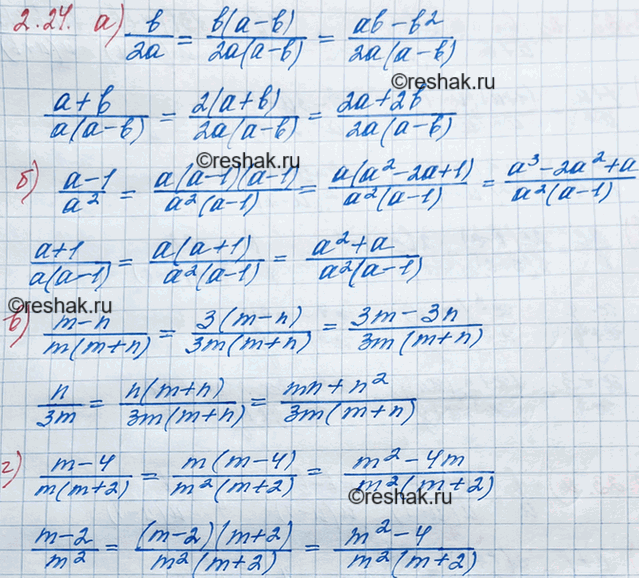 2.24. а) b/2a = b(a-b)/2a(a-b) = ab-b²/2a(a-b)
©reshak.ru
a+b/a(a-b) = 2(a+b)/2a(a-b) = 2a+2b/2a(a-b)
©reshak.ru
б) a-1/a² = a(a-1)(a-1)/a²(a-1) = a(a²-2a+1)/a²(a-1) = a³-2a²+a/a²(a-1)
a+1/a(a-1) = a(a+1)/a²(a-1) = a²+a/a²(a-1)
©reshak.ru
в) m-n/m(m+n) = 3(m-n)/3m(m+n) = 3m-3n/3m(m+n)
n/3m = n(m+n)/3m(m+n) = mn+n²/3m(m+n)
г) m-4/m(m+2) = m(m-4)/m²(m+2) = m²-4m/m²(m+2)
©reshak.ru
m-2/m² = (m-2)(m+2)/m²(m+2) = m²-4/m²(m+2)